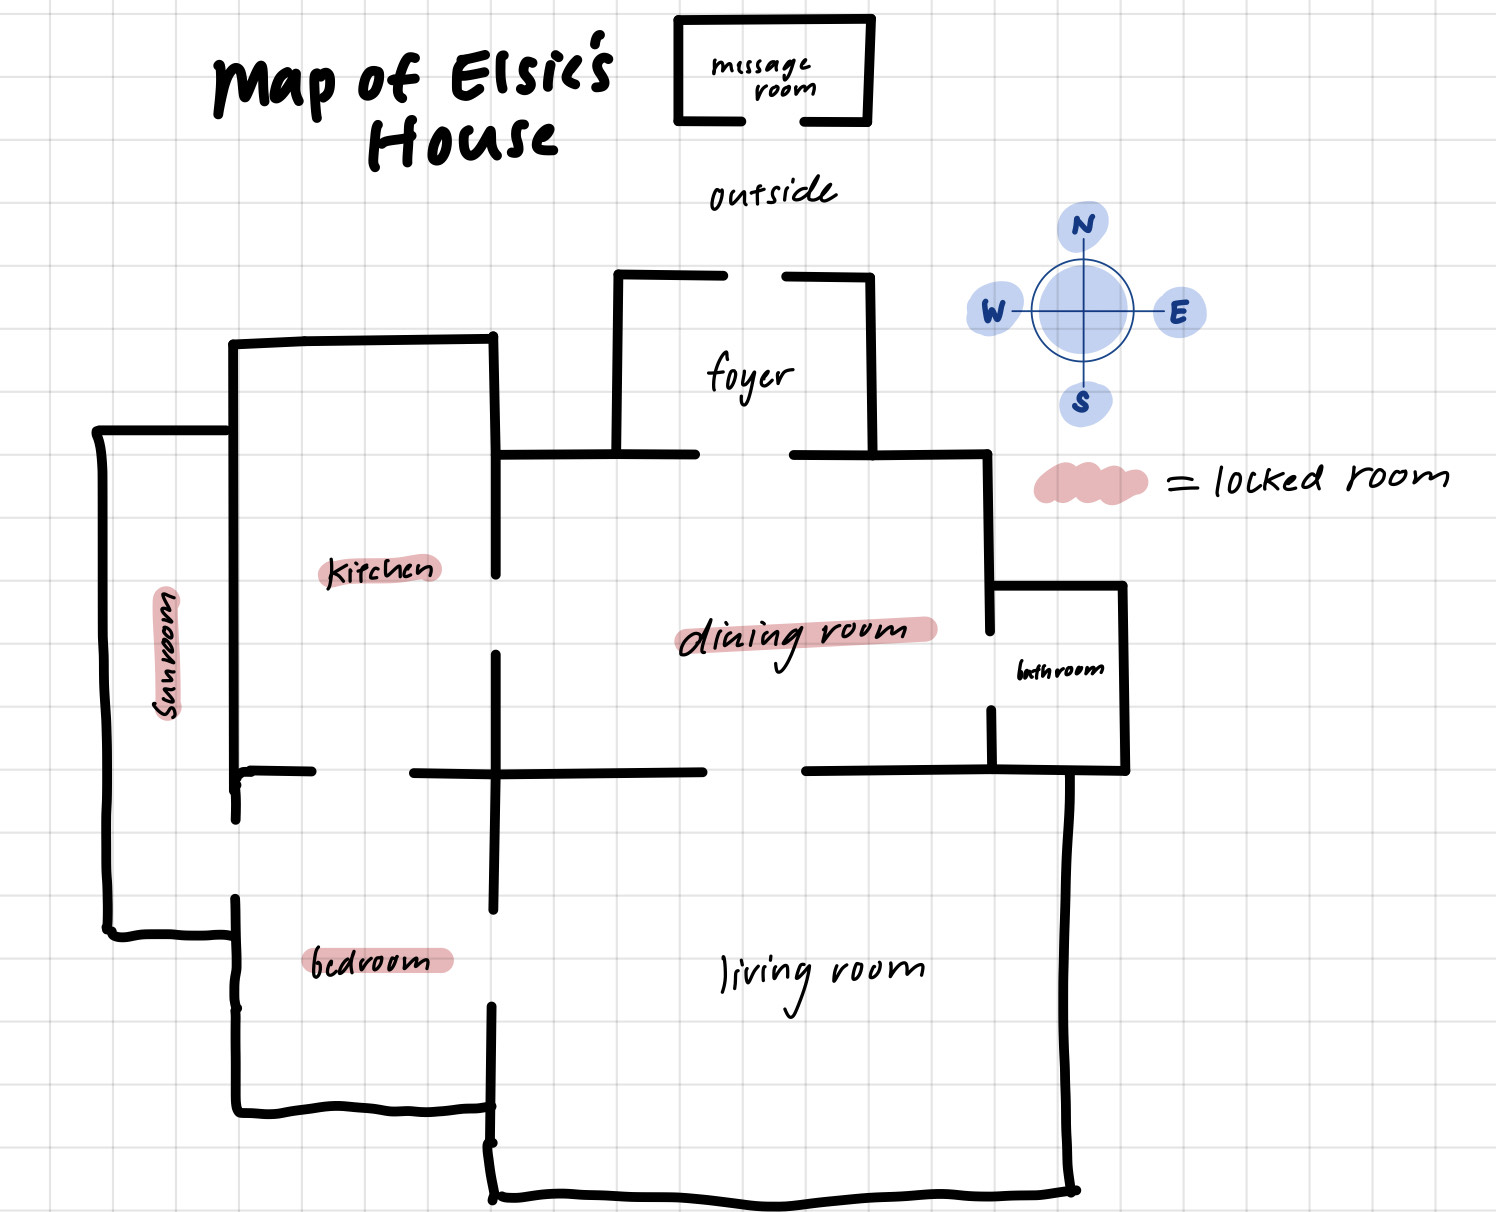 Map of Elsie's
House
message
room
outside
N
W
E
S
foyer
= locked room
kitchen
sunroom
dining room
bathroom
bedroom
living room